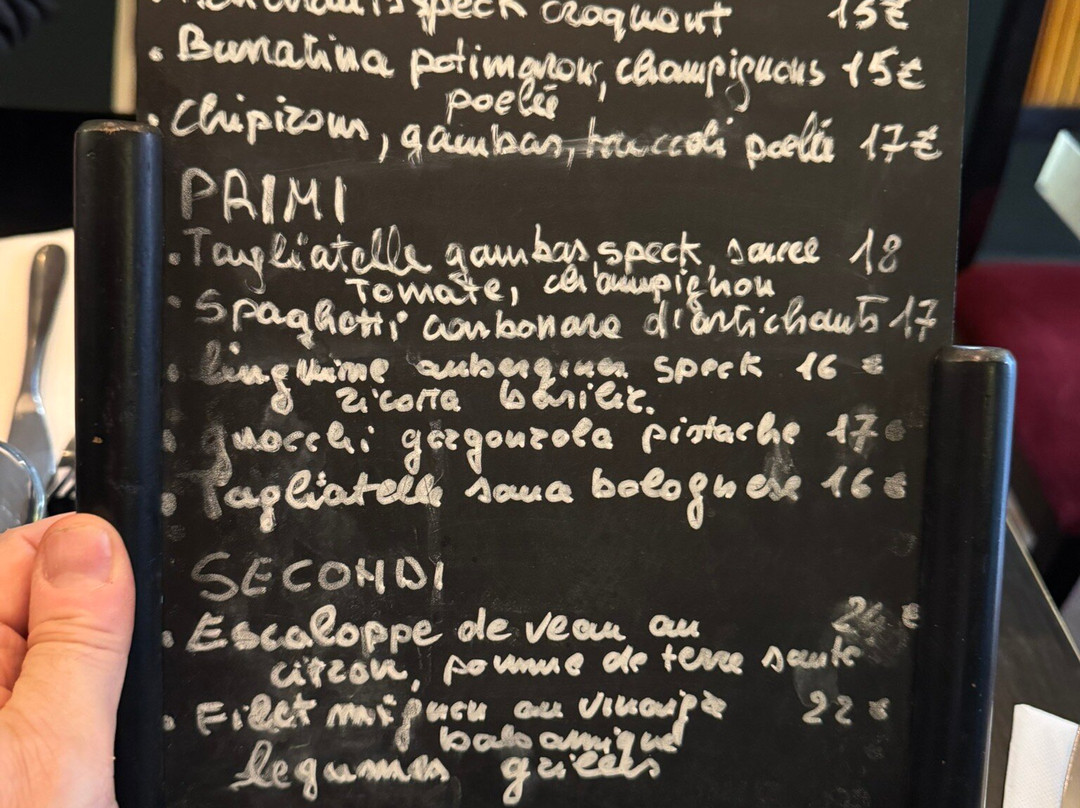 speck croquant 15€
• Burratina potimarron, champignons 15€
poelée
• Chipirons, gambas, broccoli poelée 17€
PRIMI
• Tagliatelle gambas speck sauce 18
Tomate, champignon
• Spaghetti carbonara d'artichauts 17
• linguine aubergines speck 16 €
ricotta basilic.
• gnocchi gorgonzola pistache 17
• Tagliatelle sauce bolognese 16 €
SECONDI
• Escaloppe de veau au €
citron, pomme de terre saute
• Filet mignon au vinaigre 22 €
balsamique
legumes grillés